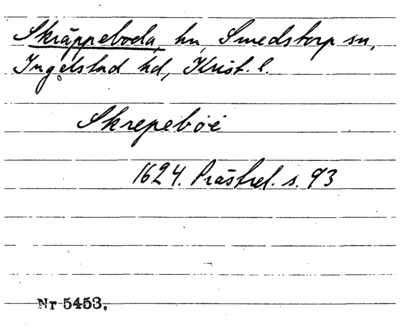 Skräppeboda, hn, Smedstorp sn,
Ingelstad hd, Krist. l.
Skrepeböé
1624. Prästrel. s. 93
Nr 5453.